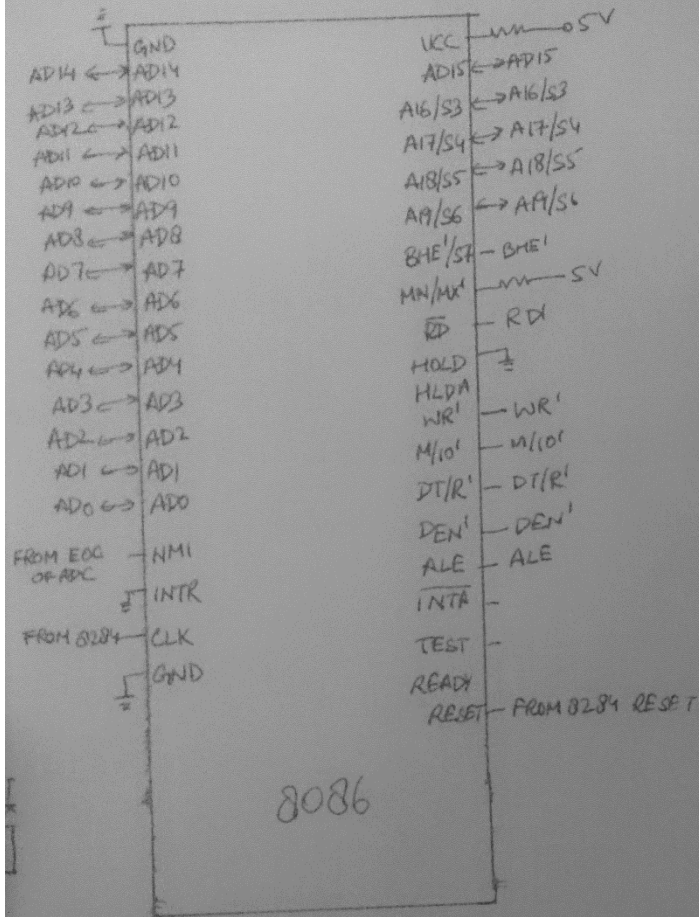 GND
AD14 AD14
AD13 AD13
AD12 AD12
AD11 AD11
AD10 AD10
AD9 AD9
AD8 AD8
AD7 AD7
AD6 AD6
AD5 AD5
AD4 AD4
AD3 AD3
AD2 AD2
AD1 AD1
AD0 AD0
FROM EOC NMI
OF ADC
INTR
FROM 8284 CLK
GND
VCC 5V
AD15 AD15
A16/S3 A16/S3
A17/S4 A17/S4
A18/S5 A18/S5
A19/S6 A19/S6
BHE'/S7 BHE'
MN/MX' 5V
R̅D̅ RD'
HOLD
HLDA
WR' WR'
M/IO' M/IO'
DT/R' DT/R'
DEN' DEN'
ALE ALE
I̅N̅T̅A̅
TEST
READY
RESET FROM 8284 RESET
8086